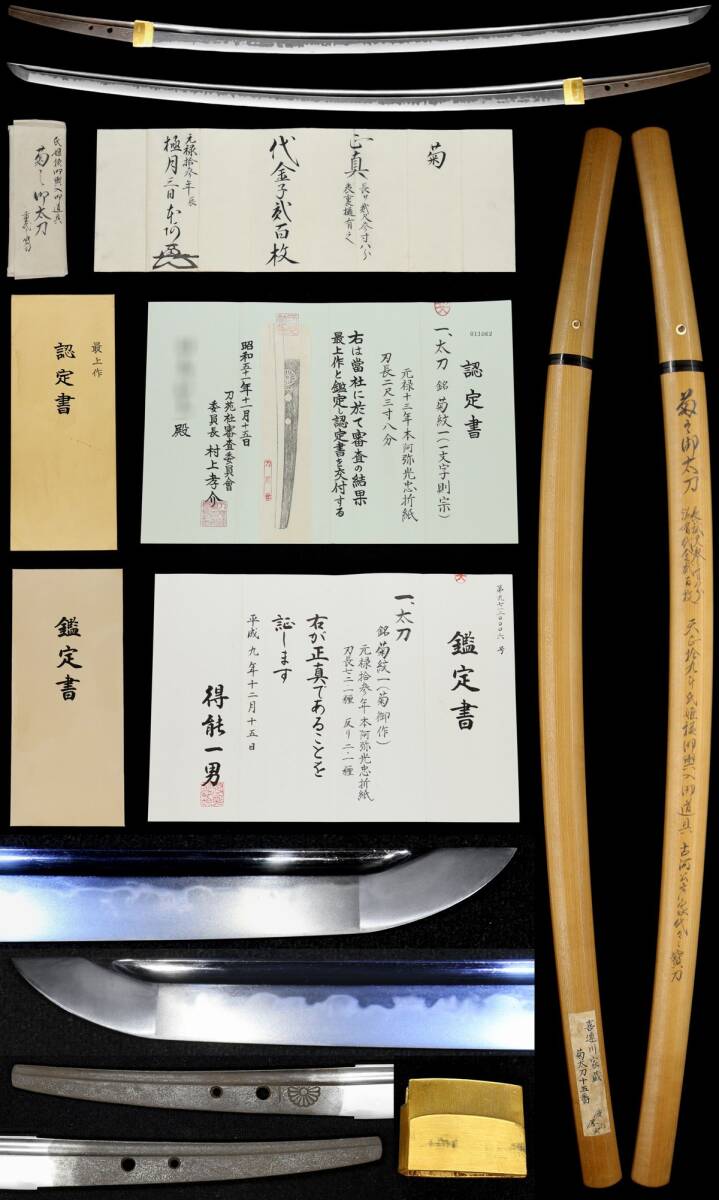 氏姫様御輿入御道具
菊之御太刀
菊
正真
長サ貳尺参寸八分
表裏樋有之
代金子貳百枚
元禄拾参年辰
極月三日
本阿
最上作
認定書
011062
認定書
一、太刀 銘 菊紋一(一文字則宗)
元禄十三年本阿弥光忠折紙
刃長二尺三寸八分
右は當社に於て審査の結果
最上作と鑑定し認定書を交付する
昭和五十一年十一月十五日
刀苑社審査委員會
委員長 村上孝介
殿
鑑定書
第九七三〇〇〇六号
鑑定書
一、太刀
銘 菊紋一(菊御作)
元禄拾参年本阿弥光忠折紙
刃長七二・一糎 反り二・一糎
右が正真であることを
証します
平成九年十二月十五日
得能一男
菊之御太刀
天正拾九年氏姫様御輿入御道具
喜連川家蔵
菊太刀十五番